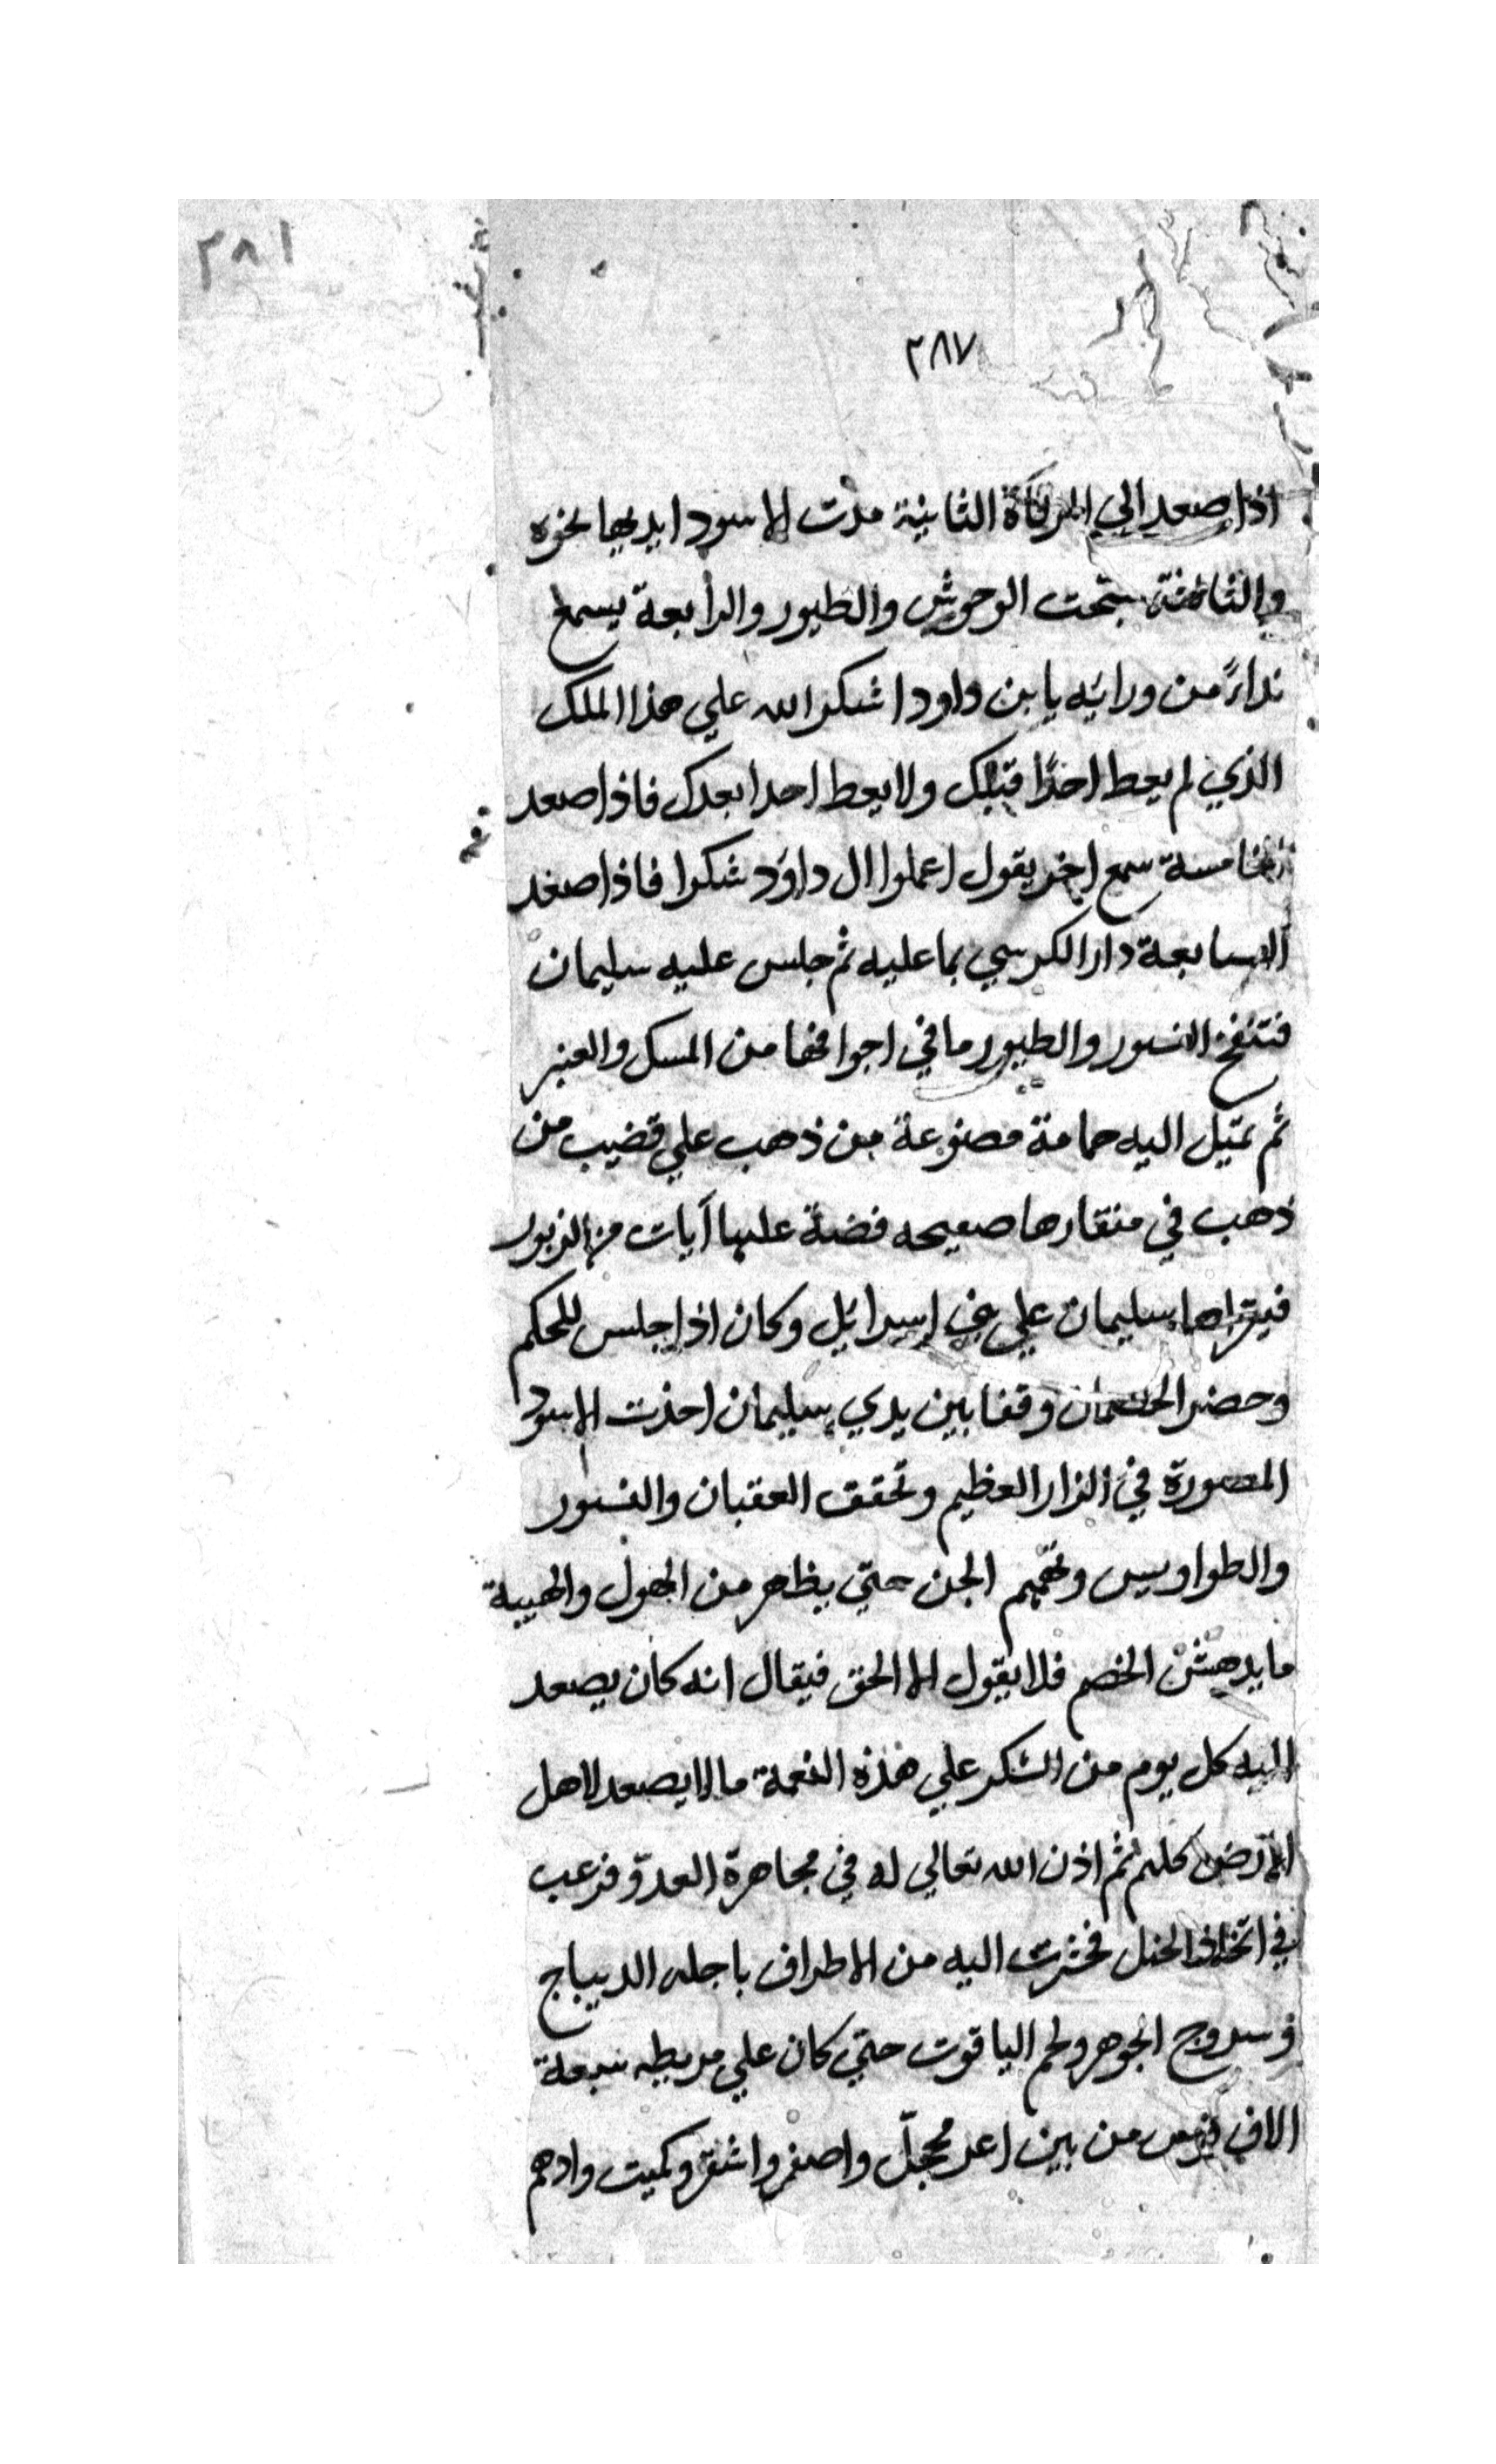 ٢٨١
٢٨٧
اذا صعد الي المرقاة الثانية مدت الاسود ايديها نحوه
والثالثة سبحت الوحوش والطيور والرابعة يسمع
نداءً من ورائه يا بن داود اشكر الله علي هذا الملك
الذي لم يعط احدًا قبلك ولا يعط احدا بعدك فاذا صعد
الخامسة سمع اخر يقول اعملوا ال داود شكرا فاذا صعد
السابعة دار الكرسي بما عليه ثم جلس عليه سليمان
فتنفخ النسور والطيور ما في اجوافها من المسك والعنبر
ثم تميل اليه حمامة مصنوعة من ذهب علي قضيب من
ذهب في منقارها صحيفه فضة عليها آيات من الزبور
فيقراها سليمان علي بني اسرائيل وكان اذا جلس للحكم
وحضر الخصمان وقفا بين يدي سليمان اخذت الاسود
المصورة في الزار العظيم وتخفق العقبان والنسور
والطواويس وتهمهم الجن حتي يظهر من الهول والهيبة
ما يدهش الخصم فلا يقول الا الحق فيقال انه كان يصعد
اليه كل يوم من الشكر علي هذه النعمة ما لا يصعد لاهل
الارض كلهم ثم اذن الله تعالي له في مجاهرة العدو فرغب
في اتخاذ الخيل فحشرت اليه من الاطراف باجله الديباج
وسروج الجوهر ولجم الياقوت حتي كان علي مربطه سبعة
الاف فرس من بين اغر محجل واصفر واشقر وكميت وادهم